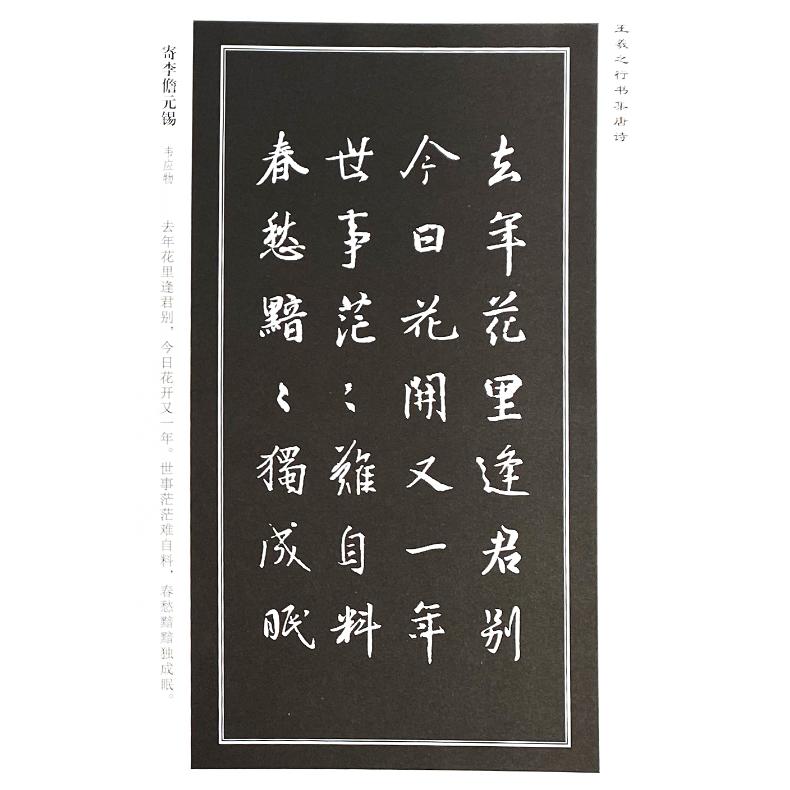 王羲之行书集唐诗
去年花里逢君别
今日花開又一年
世事茫〻難自料
春愁黯〻獨成眠
寄李儋元锡
韦应物
去年花里逢君别，今日花开又一年。世事茫茫难自料，春愁黯黯独成眠。